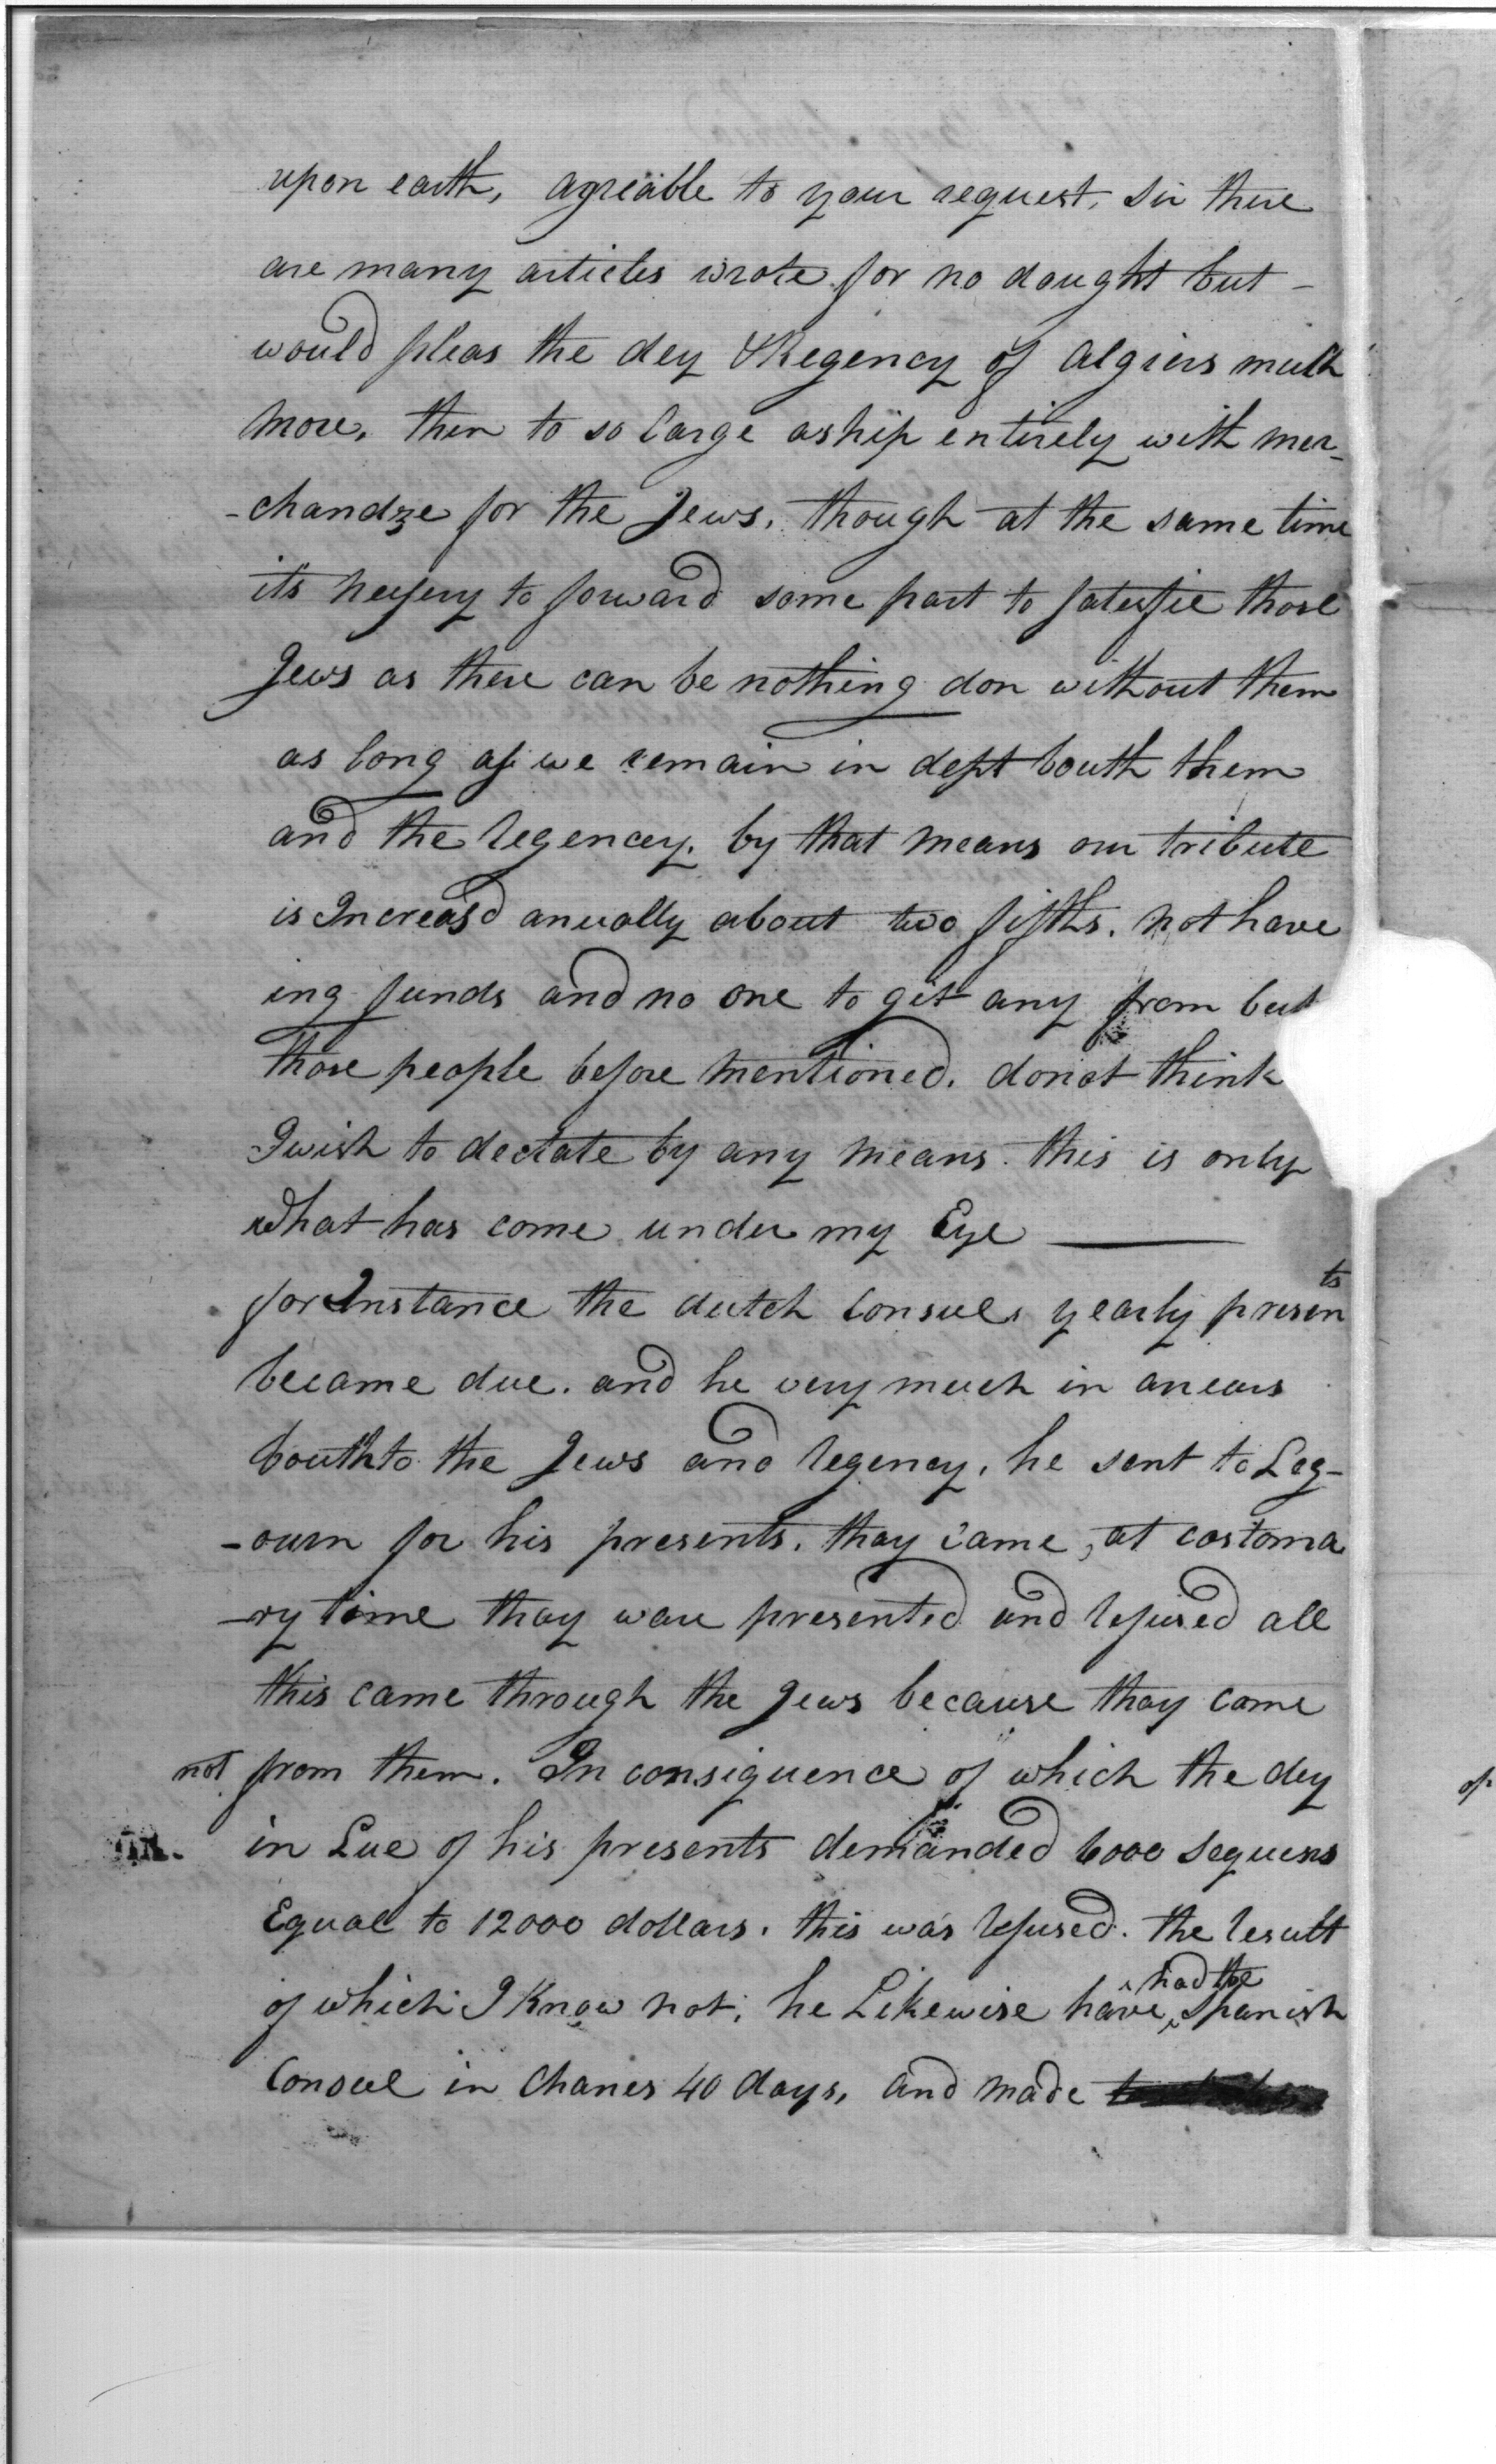 upon earth, agreable to your request, Sir there
are many articles wrote for no dought but -
would pleas the dey & Regency of Algiers much
more, then to so large aship entirely with mer-
-chandze for the Jews. though at the same time
its nessery to forward some part to satesfie those
Jews as there can be nothing don without them
as long as we remain in dept bouth them
and the regencey. by that means our tribute
is Increas'd anually about two fifths. not have
ing funds and no one to git any from but
those people before mentioned. donot think
I wish to dectate by any means. this is only
what has come under my Eye ——
for Instance the dutch Consuls yearly presents
became due. and he very much in arrears
bouth to the Jews and regency, he sent to Leg-
-ourn for his presents. thay came, at costoma
-ry time thay ware presented and refused all
this came through the Jews because thay came
not from them. In consiquence of which the dey
in Lue of his presents demanded 6000 sequens
Equal to 12000 dollars. this was refused. the result
of which I know not, he Likewise have had the Spanish
Consul in Chanes 40 days, and made